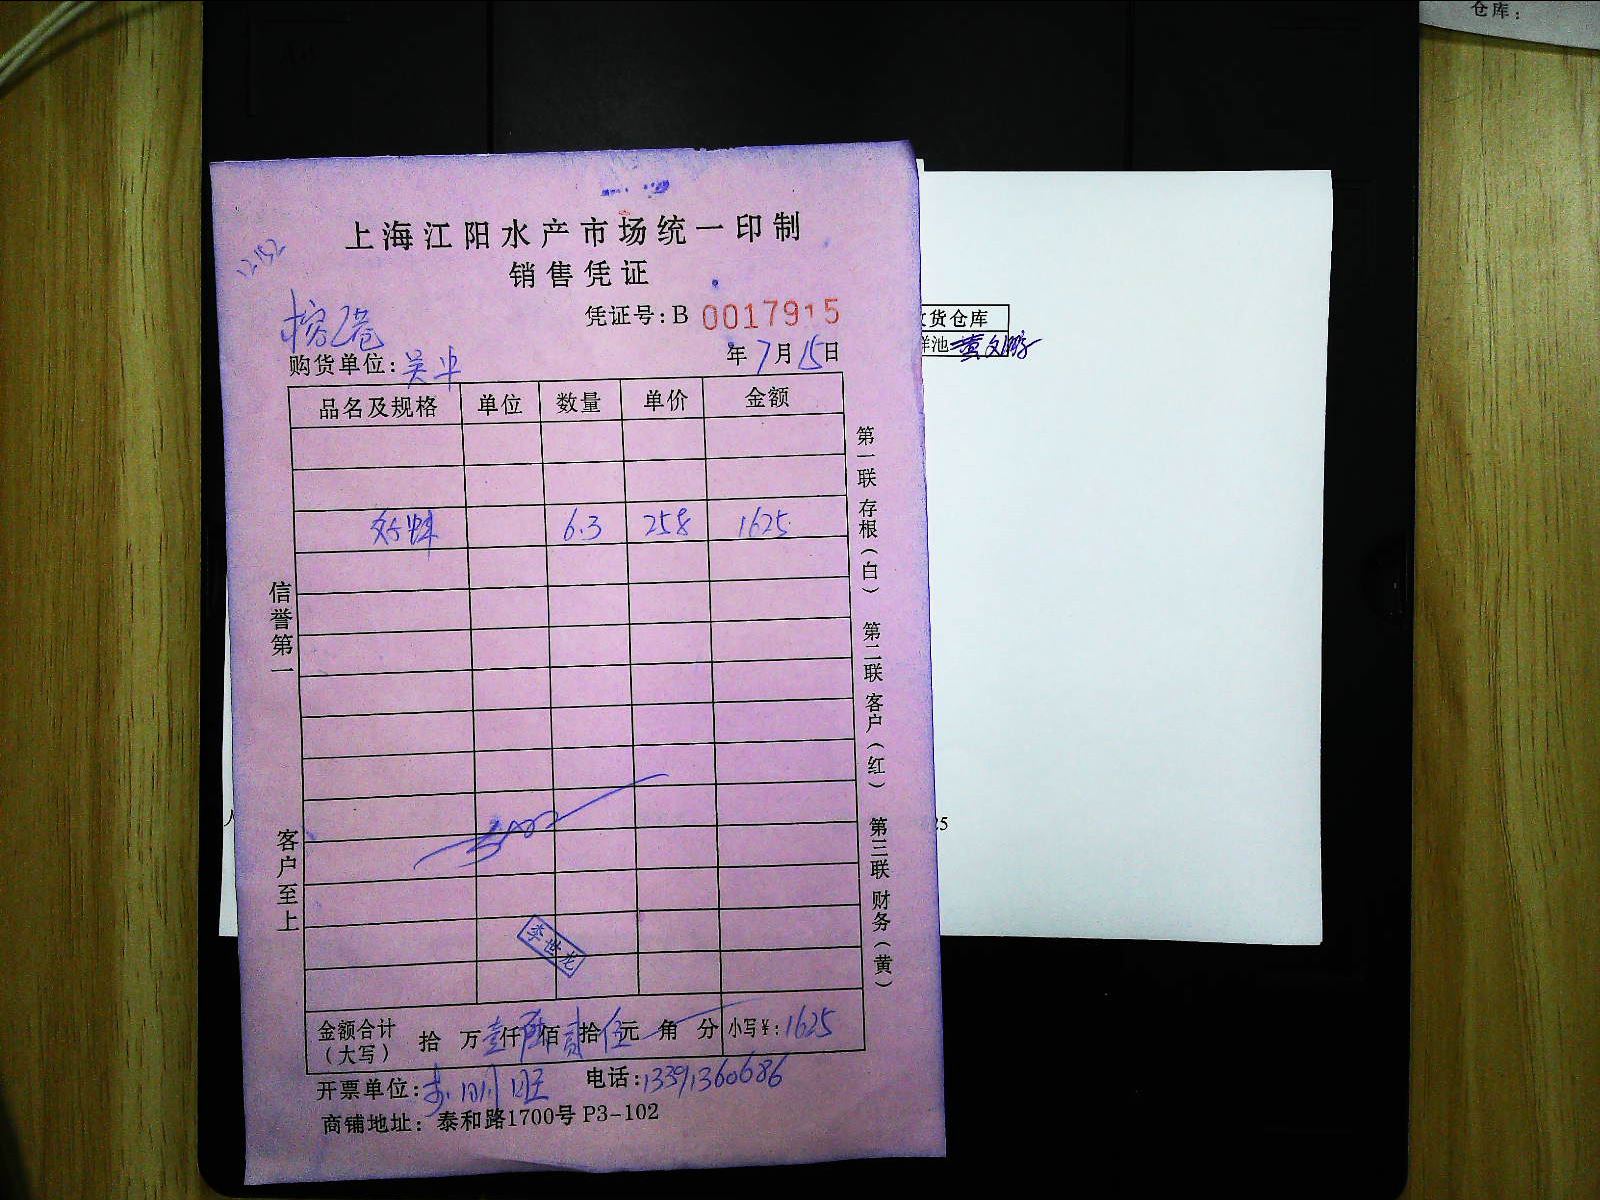 仓库：
上海江阳水产市场统一印制
销售凭证
12152
凭证号：B 0017915
购货单位：吴中
年7月15日
品名及规格 单位 数量 单价 金额
6.3 258 1625
信誉第一
客户至上
第一联 存根（白） 第二联 客户（红） 第三联 财务（黄）
李世龙
金额合计（大写） 拾 万壹仟陆佰贰拾伍元 角 分 小写¥：1625
开票单位： 电话：13391360686
商铺地址：泰和路1700号 P3-102
货仓库
池
25